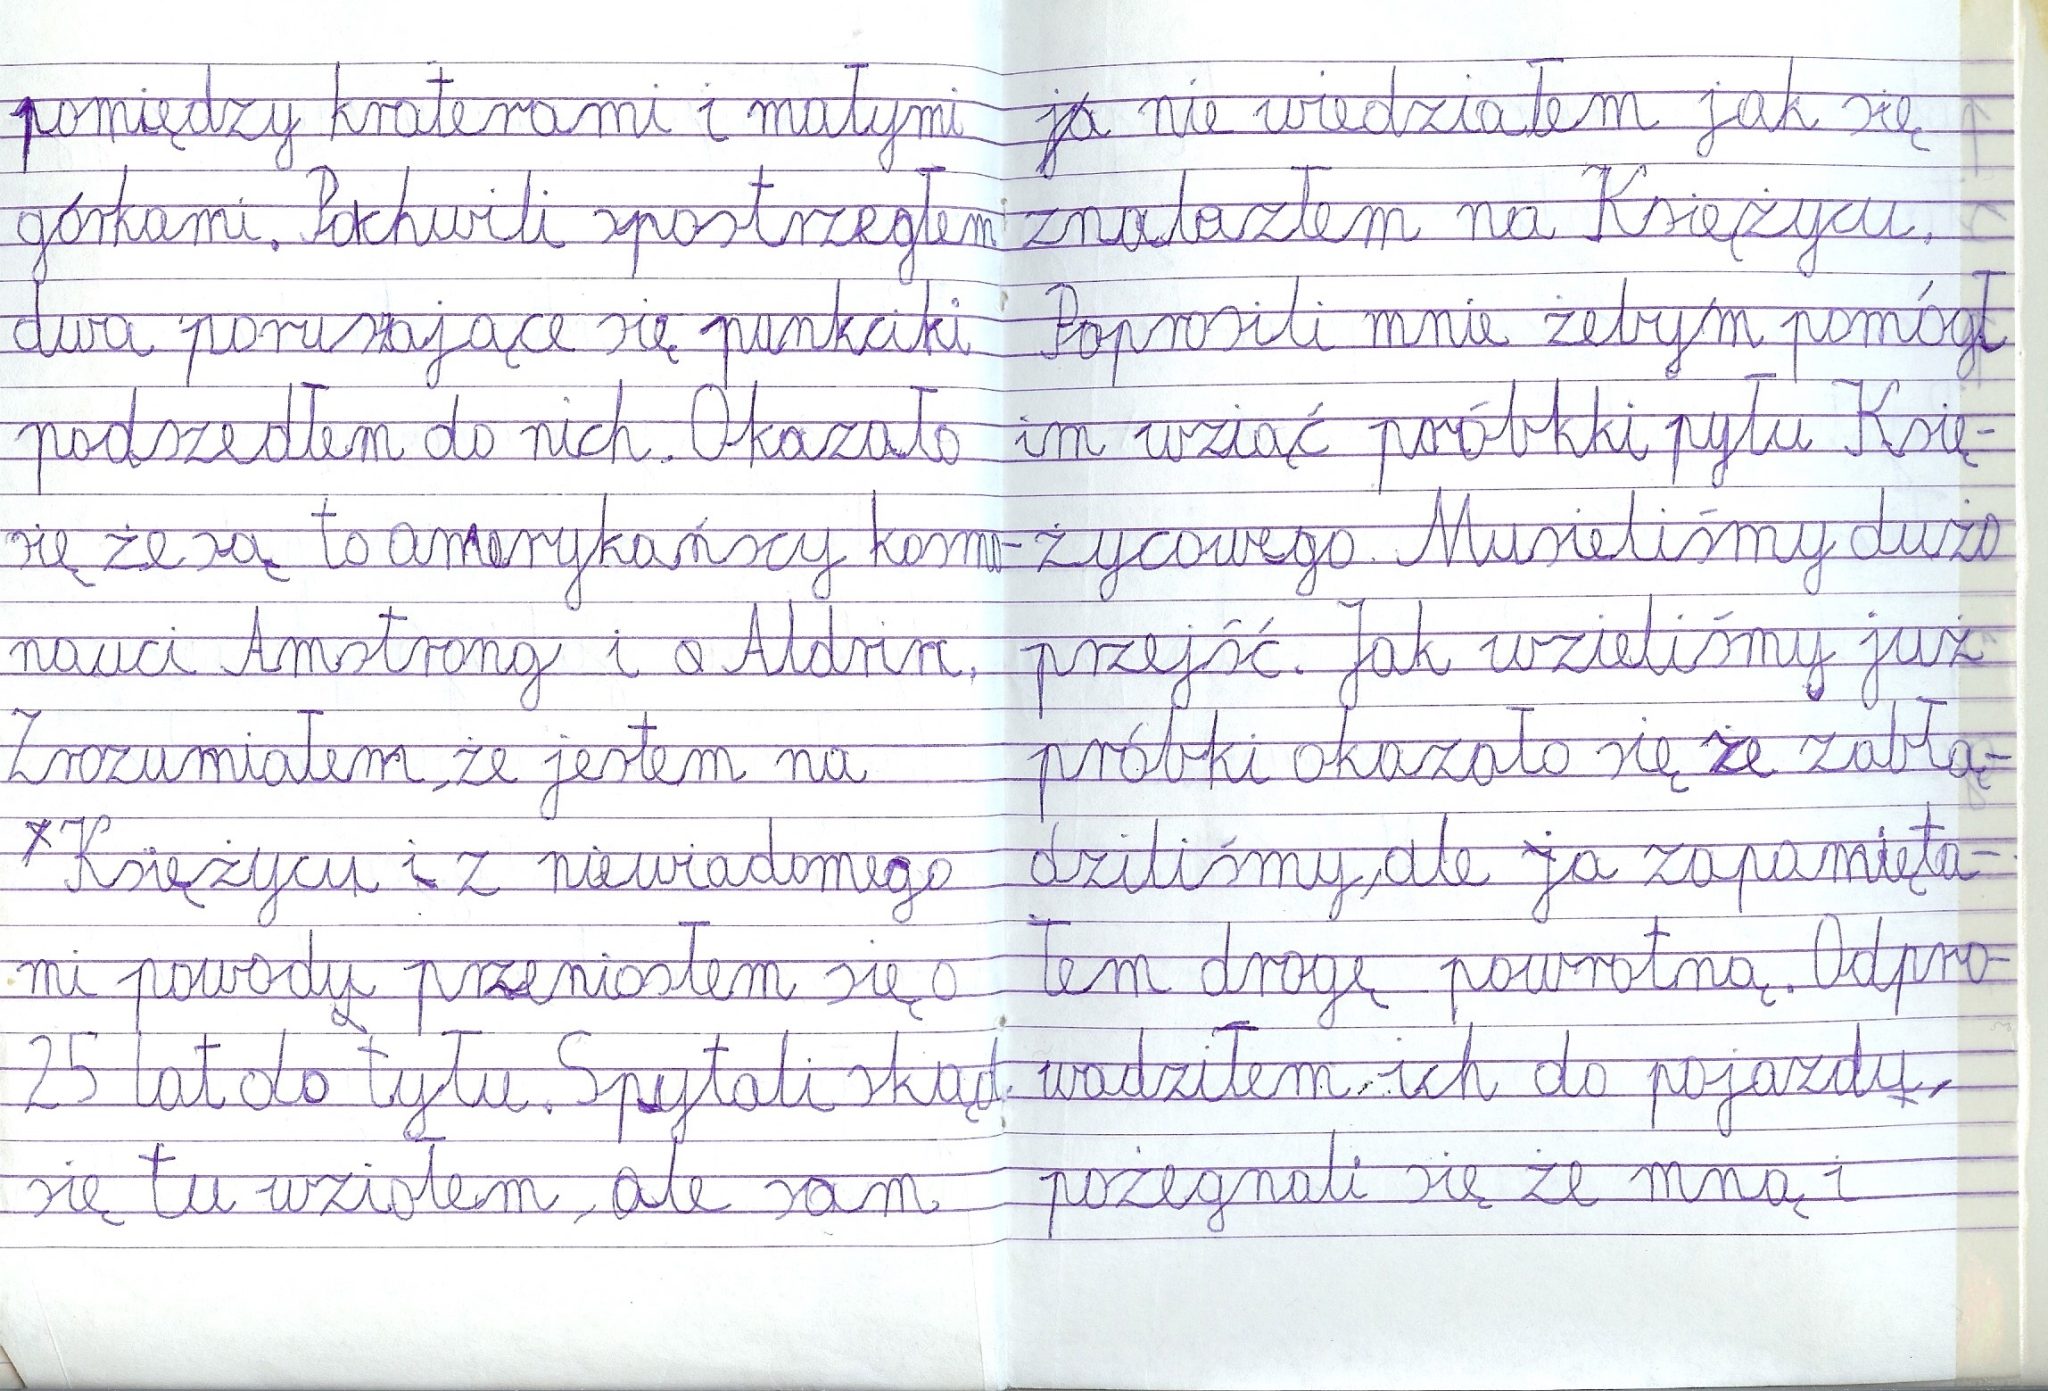 pomiędzy kraterami i małymi
górkami. Po chwili spostrzegłem
dwa poruszające się punkciki
podszedłem do nich. Okazało
się że są to amerykańscy kosmo-
nauci Amstrong i a Aldrin.
Zrozumiałem, że jestem na
Księżycu i z niewiadomego
mi powody przeniosłem się o
25 lat do tyłu. Spytali skąd
się tu wziołem, ale sam
ja nie wiedziałem jak się
znalazłem na Księżycu.
Poprosili mnie żebym pomógł
im wziąć próbkki pyłu Księ-
życowego. Musieliśmy dużo
przejść. Jak wzieliśmy już
próbki okazało się że zabłą-
dziliśmy, ale ja zapamięta-
łem drogę powrotną. Odpro-
wadziłem ich do pojazdy,
pożegnali się że mną i